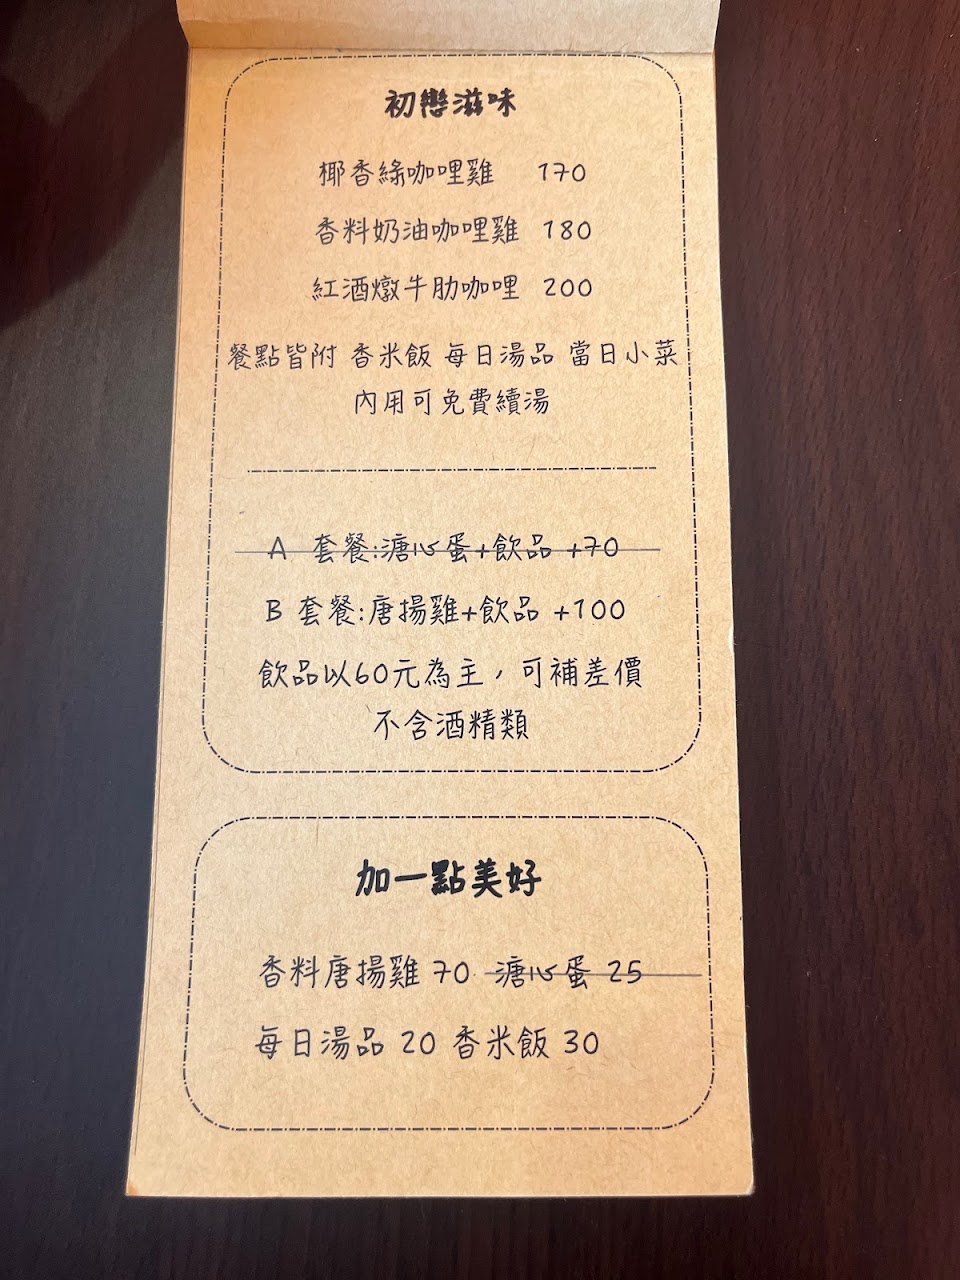 初戀滋味
椰香綠咖哩雞 170
香料奶油咖哩雞 180
紅酒燉牛肋咖哩 200
餐點皆附 香米飯 每日湯品 當日小菜
內用可免費續湯
A 套餐:溏心蛋+飲品 +70
B 套餐:唐揚雞+飲品 +100
飲品以60元為主，可補差價
不含酒精類
加一點美好
香料唐揚雞 70 溏心蛋 25
每日湯品 20 香米飯 30